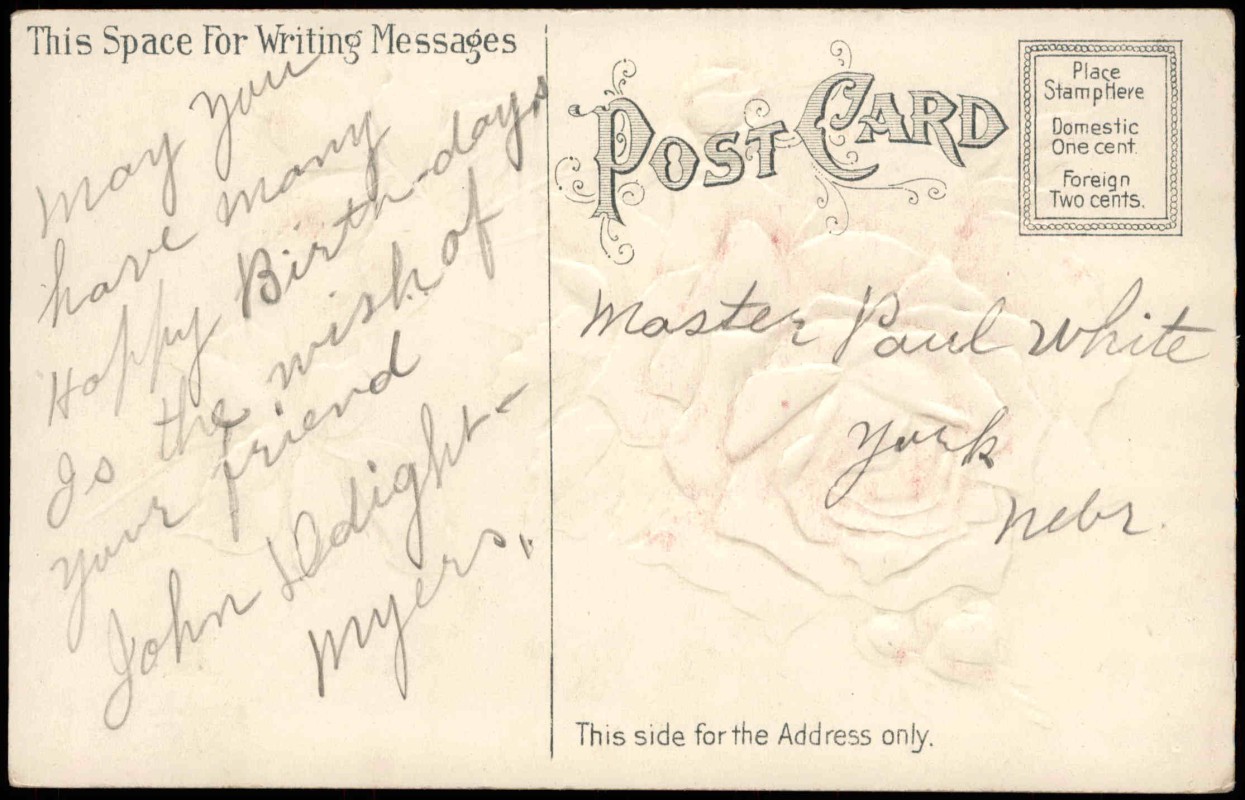 This Space For Writing Messages
May You
have many
Happy Birth-days
Is the wish of
your friend
John Ddight-
Myers.
POST CARD
Place
Stamp Here
Domestic
One cent.
Foreign
Two cents.
Master Paul White
York
Nebr.
This side for the Address only.